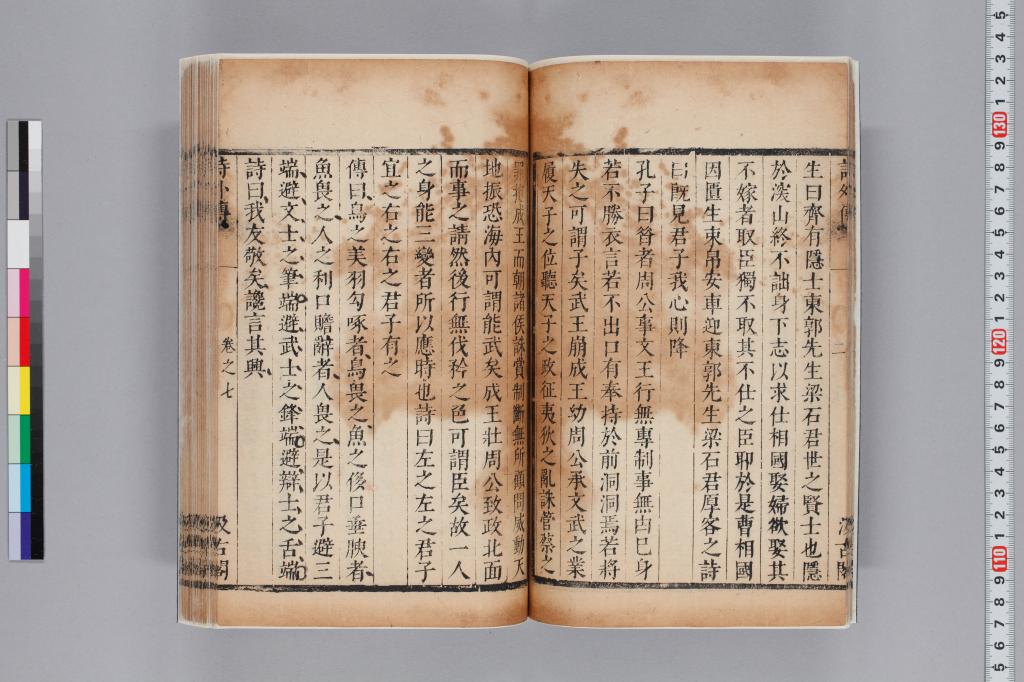 生曰齊有隱士東郭先生梁石君世之賢士也隱
於深山終不詘身下志以求仕相國娶婦欲娶其
不嫁者取臣獨不取其不仕之臣耶於是曹相國
因匱生束帛安車迎東郭先生梁石君厚客之詩
曰旣見君子我心則降
孔子曰昝者周公事文王行無專制事無由已身
若不勝衣言若不出口有奉持於前洞洞焉若將
失之可謂子矣武王崩成王幼周公承文武之業
履天子之位聽天子之政征夷狄之亂誅管蔡之
罪抱成王而朝諸侯誅賞制斷無所顧問威動天
地振恐海內可謂能武矣成王壯周公致政北面
而事之請然後行無伐矜之色可謂臣矣故一人
之身能三變者所以應時也詩曰左之左之君子
宜之右之右之君子有之
傳曰鳥之美羽勾啄者鳥畏之魚之侈口垂腴者
魚畏之人之利口贍辭者人畏之是以君子避三
端避文士之筆端避武士之鋒端避辯士之舌端
詩曰我友敬矣讒言其興
詩外傳
卷之七
汲古閣